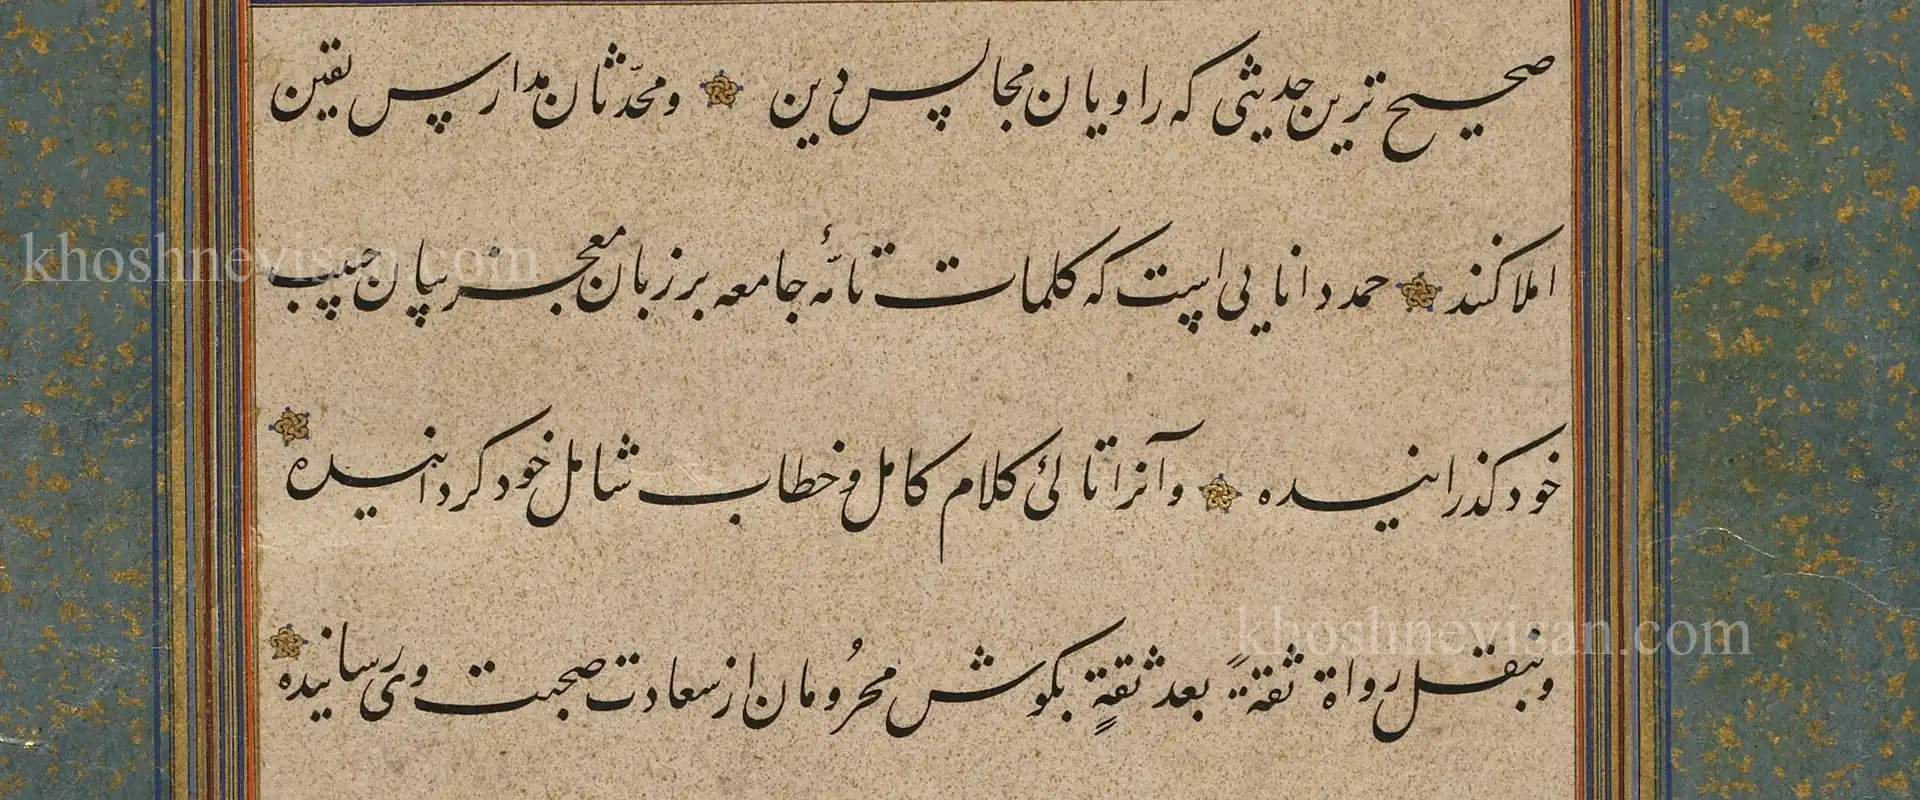 صحیح ترین حدیثی که راویان مجالس دین ومحدّثان مدارس یقین
املا کنند حمد دانایی است که کلمات تامّهٔ جامعه بر زبان معجز بیان حبیب
خود کذرانیده وآنرا تالئ کلام کامل و خطاب شامل خود کردانیده
وبنقل رواة ثقةً بعد ثقةٍ بکوش محرُومان از سعادت صحبت وی رسانیده
khoshnevisan.com
khoshnevisan.com